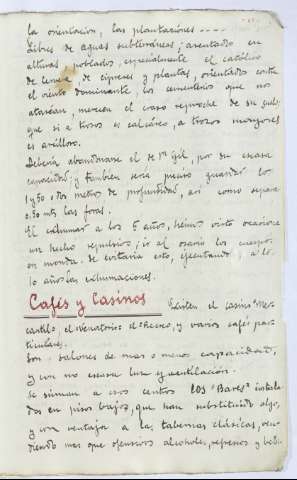 la orientacion, las plantaciones ----
Libres de aguas subterráneas; asentados en
altivas, poblados, especialmente el católico
de tierra, de cipreses y plantas, orientados contra
el viento dominante, los cementerios que nos
atarean, merecen el casi reproche de su suelo,
que si a trozos es calcáreo, a trozos mayores
es arcilloso.
Debería abandonarse el de Sn Gil, por su escasa
capacidad; y tambien sera preciso guardar los
1 y 50 o dos metros de profundidad, así como separar
0.50 mts las fosas.
El exhumar a los 5 años, hemos visto ocasiona
un hecho repulsivo; ir al osario los cuerpos
sin monda. Se evitaria esto, ejecutando, a lo
10 años las exhumaciones.
Cafés y Casinos Existen el casino Mer-
cantil, el Venatorio, el Recreo, y varios cafés par-
ticulares.
Son salones de mas o menos capacidad,
y con no escasa luz y ventilación.
Se suman a esos centos los "Bares" instala-
dos en pisos bajos, que han substituido algo,
y con ventaja a la tabernas clásicas, ven-
diendo mas que ofensivos alcoholes, refrescos y bebi-